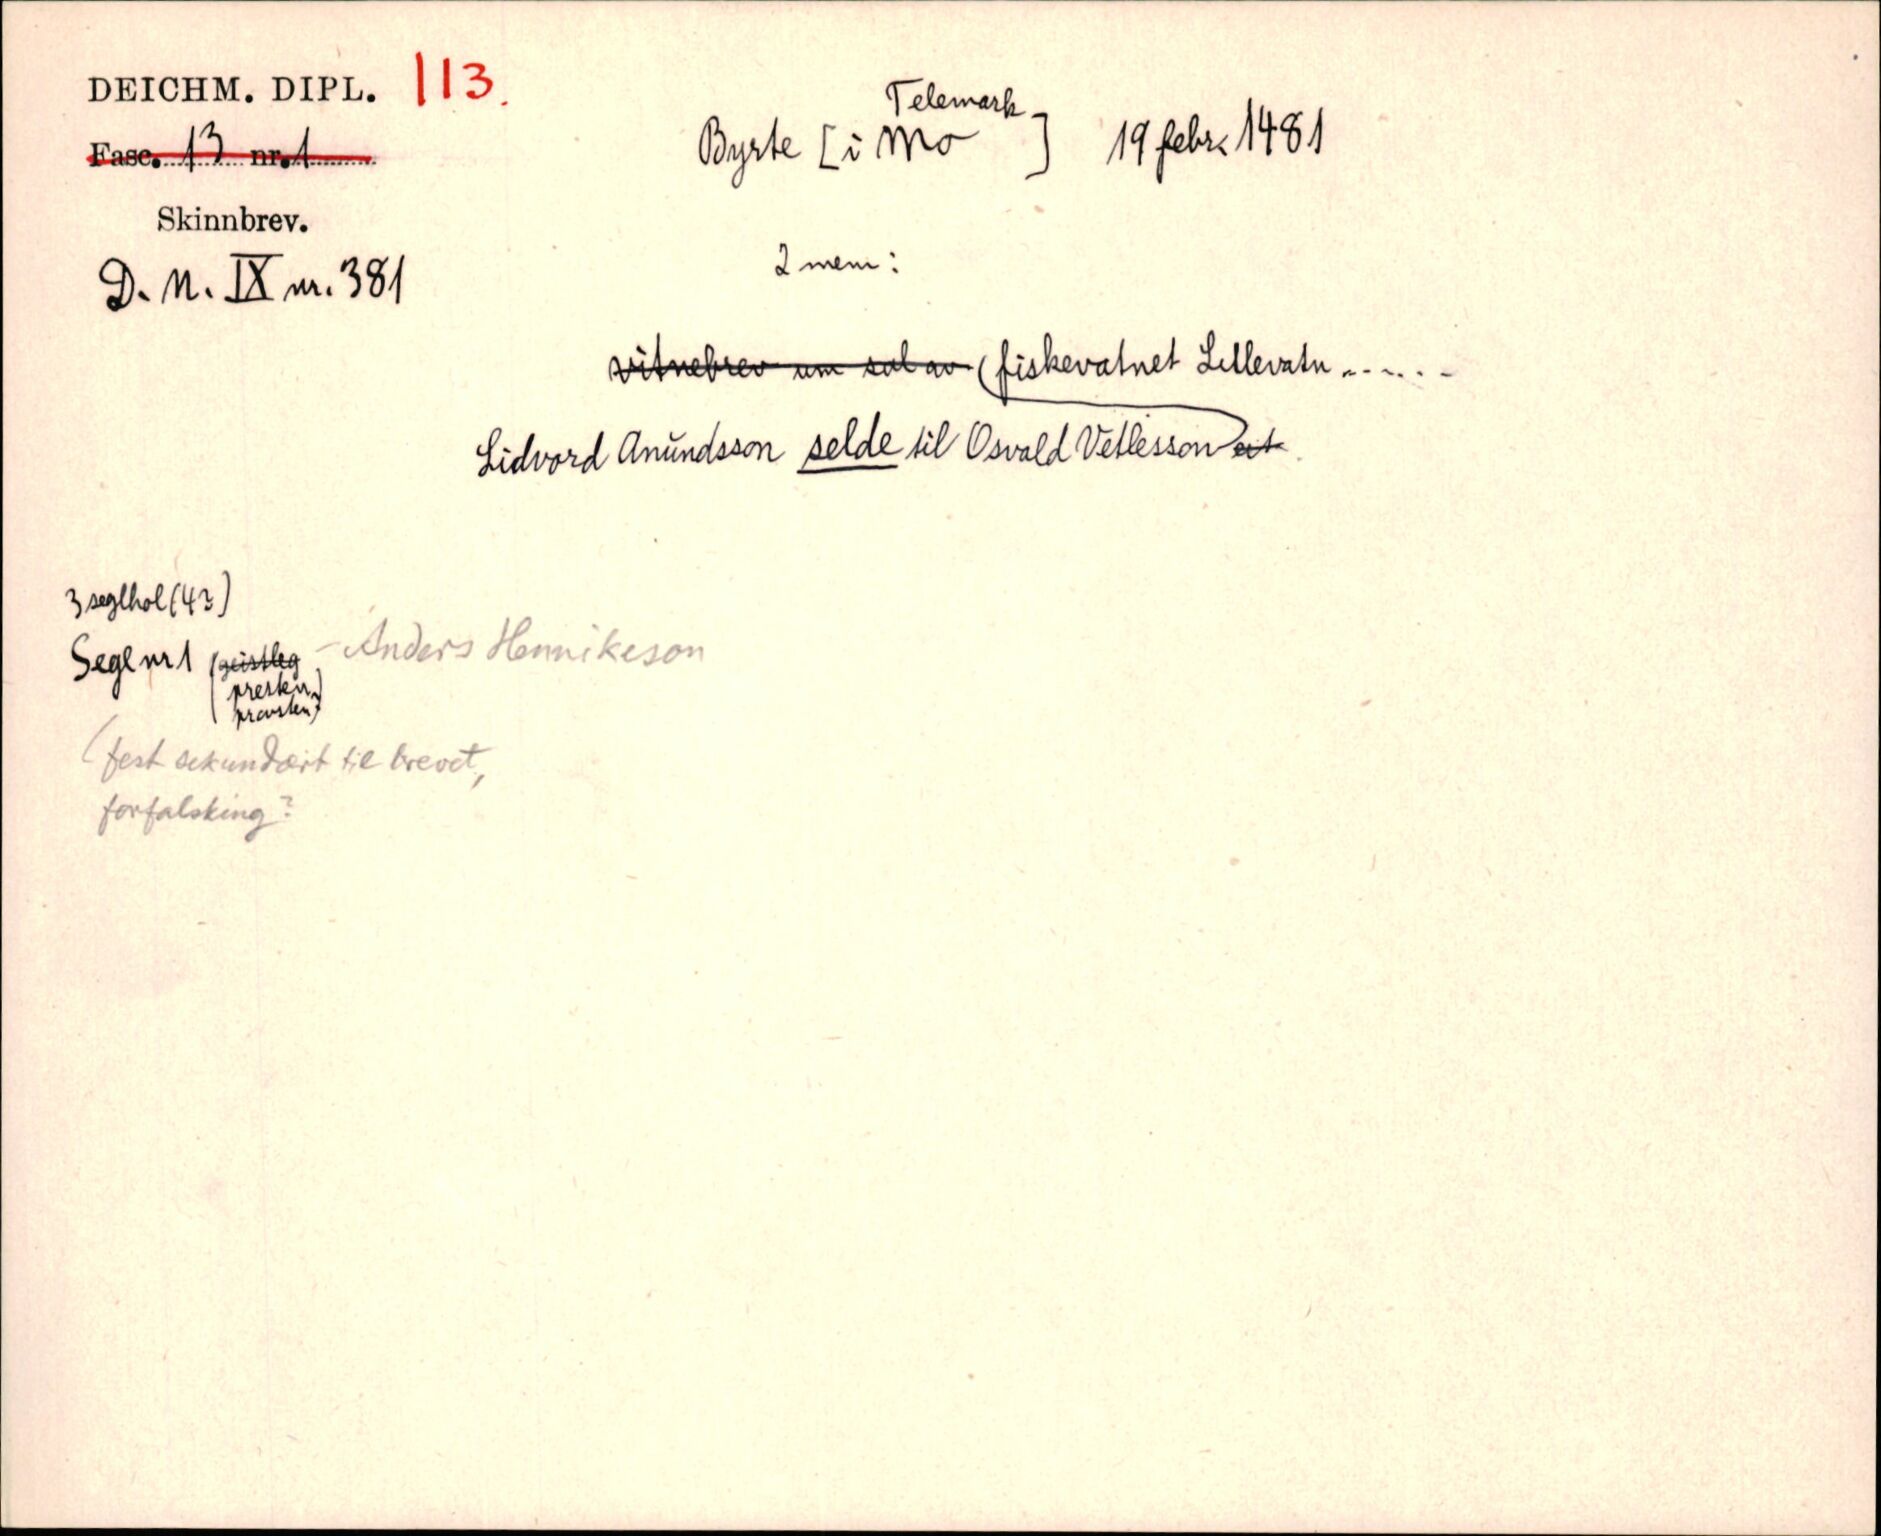 DEICHM. DIPL. 113.
Fasc. 13 nr. 1
Skinnbrev.
D. N. IX nr. 381
Telemark
Byrte [i Mo] 19 febr. 1481
2 mem:
vitnebrev um sal av (fiskevatnet Lillevatn ......
Lidvord Anŭndsson selde til Osvald Vetlesson eit
3 seglhol (4?)
Segl nr 1 (geistleg - Anders Hennikeson
presten,
prousten?)
(fest sekundært til brevet,
forfalsking?